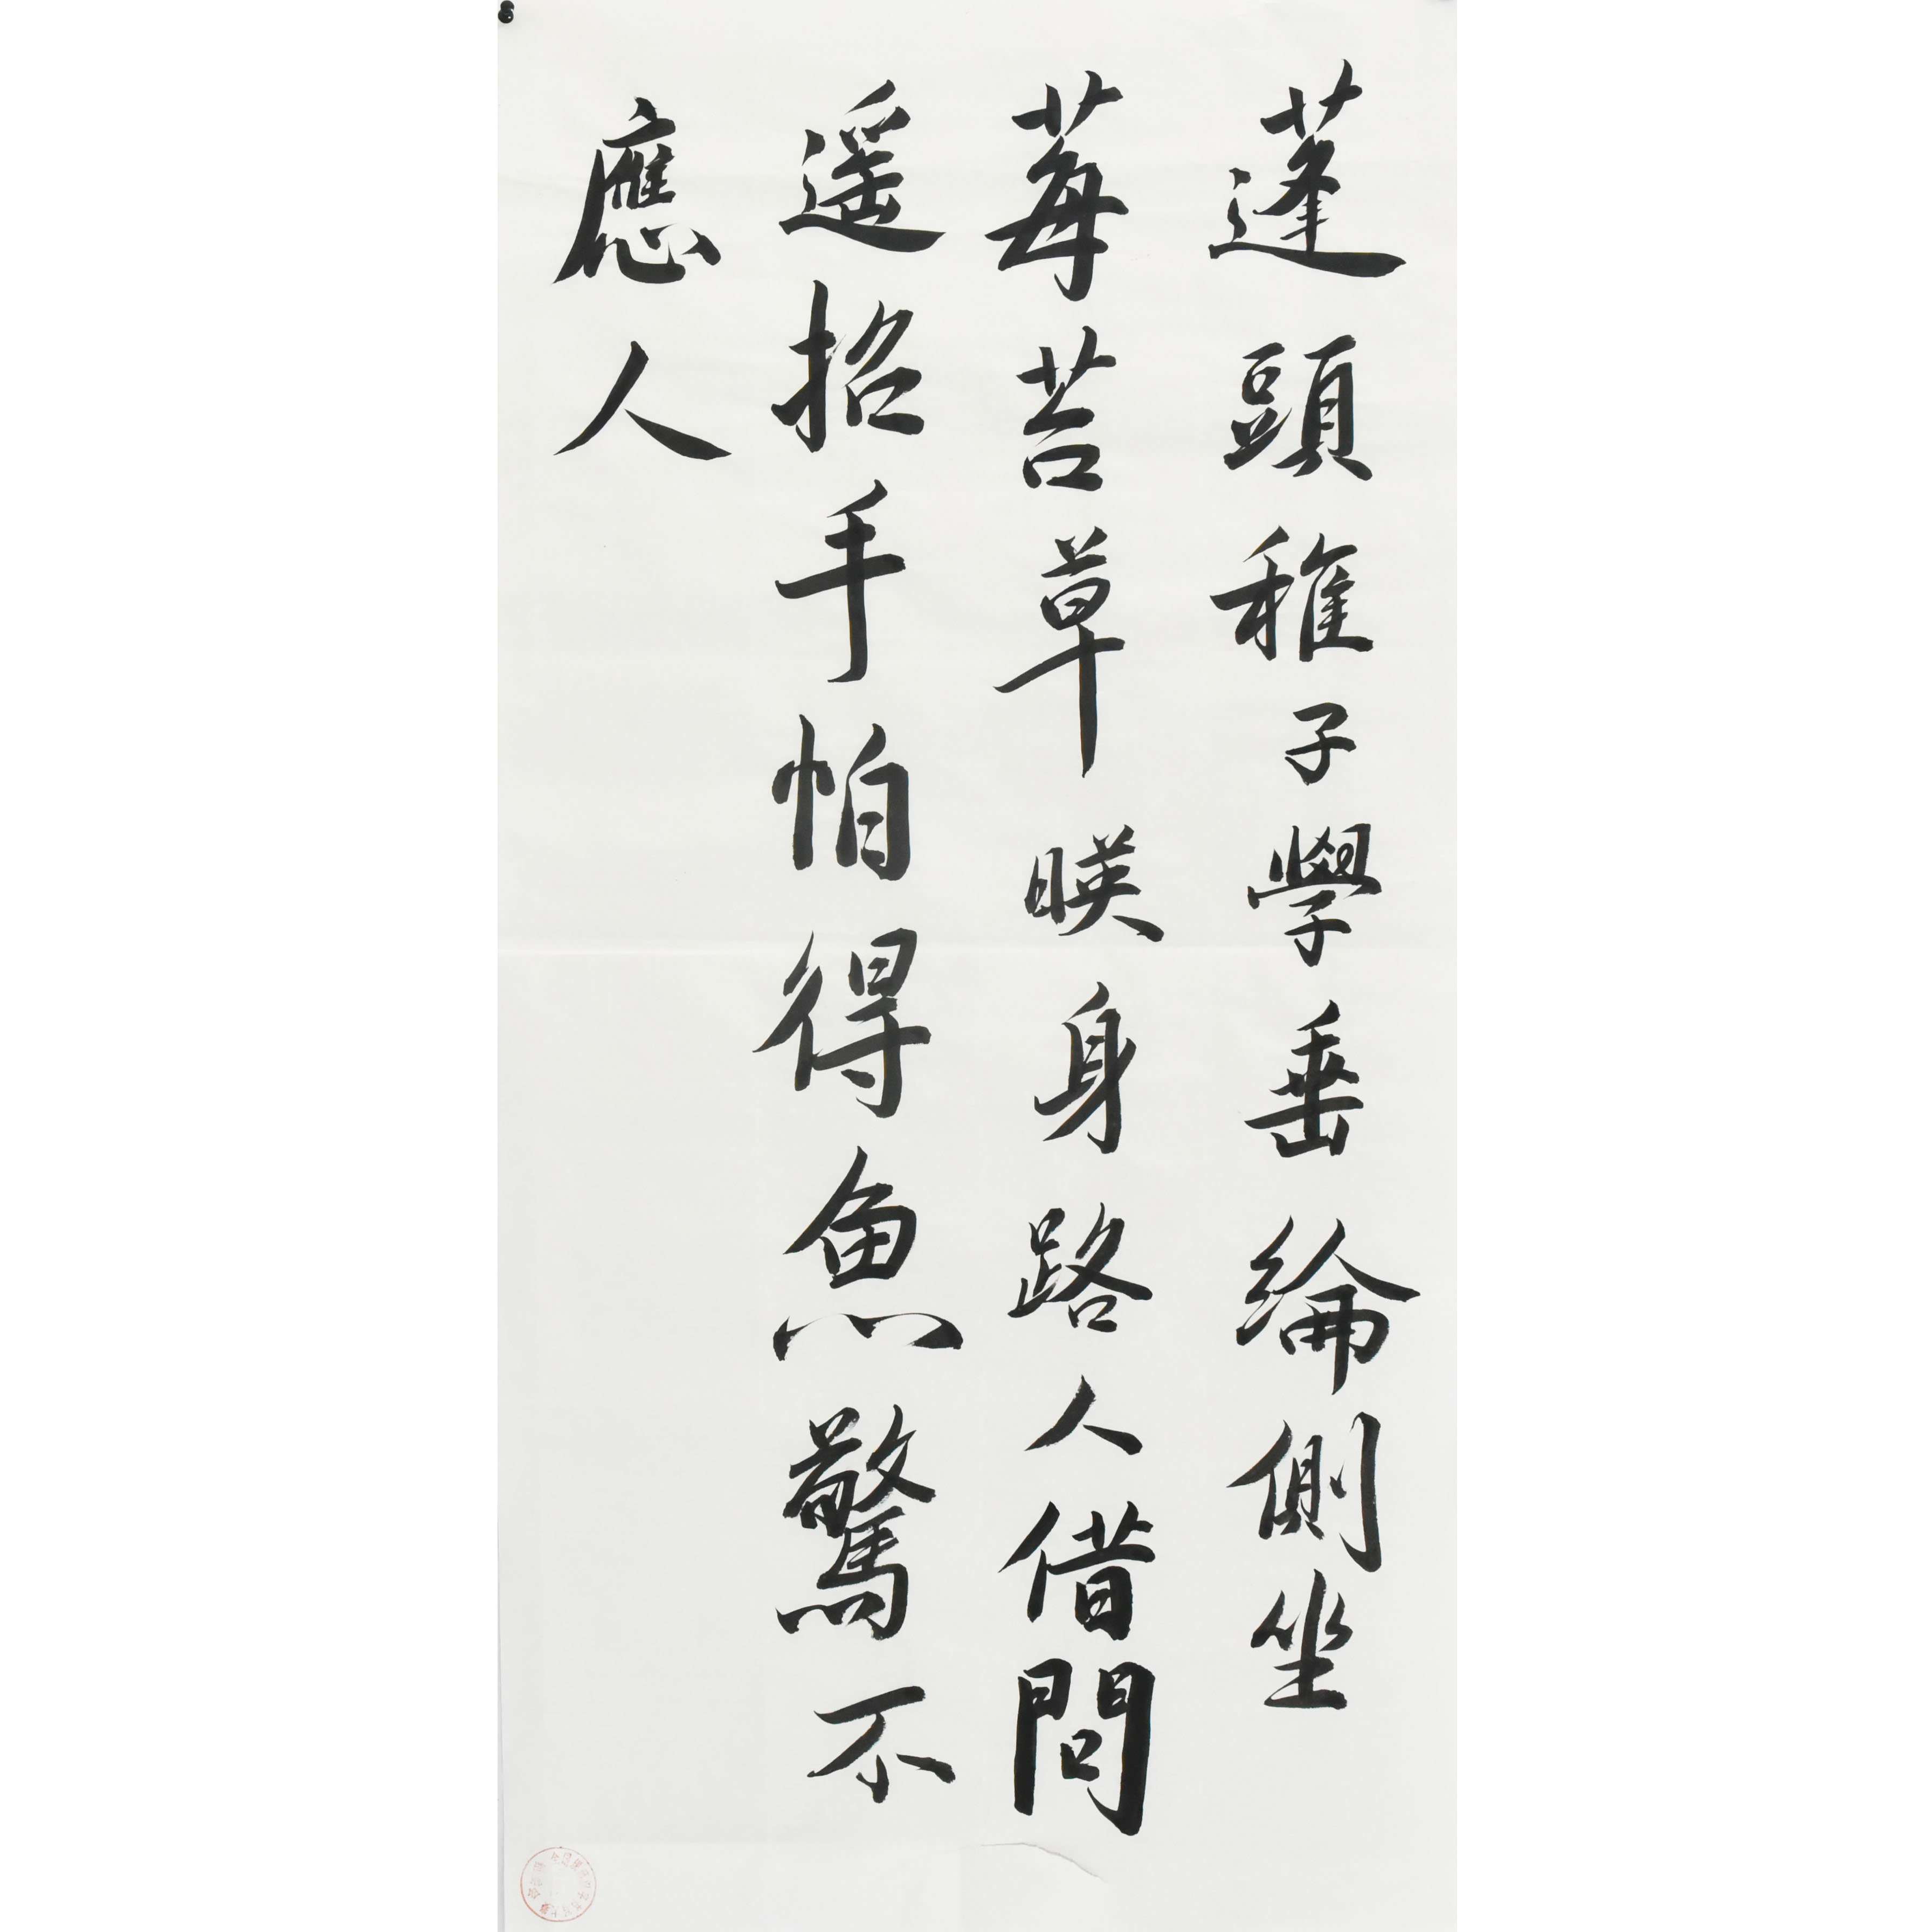 蓬頭稚子學垂綸側坐
莓苔草暎身路人借問
遥招手怕得魚驚不
應人